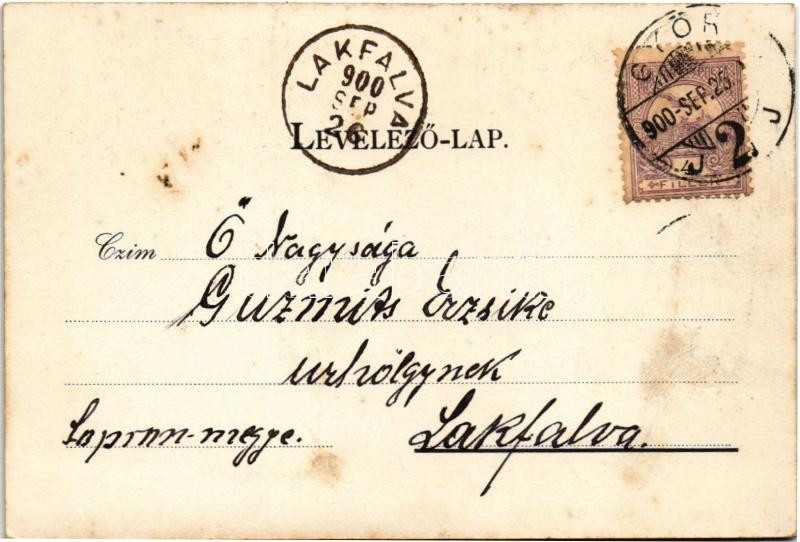 LAKFALVA
900
SEP
26
GYŐR
900-SEP.25
2
FILLÉR
LEVELEZŐ-LAP.
Czim Ő Nagysága
Guzmits Erzsike
urhölgynek
Sopron-megye. Lakfalva.